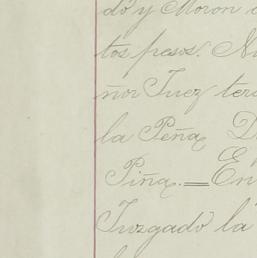 do y Moron
tos pesos.
ñor Juez ter
la Peña, D
Piña.=En
Juzgado la